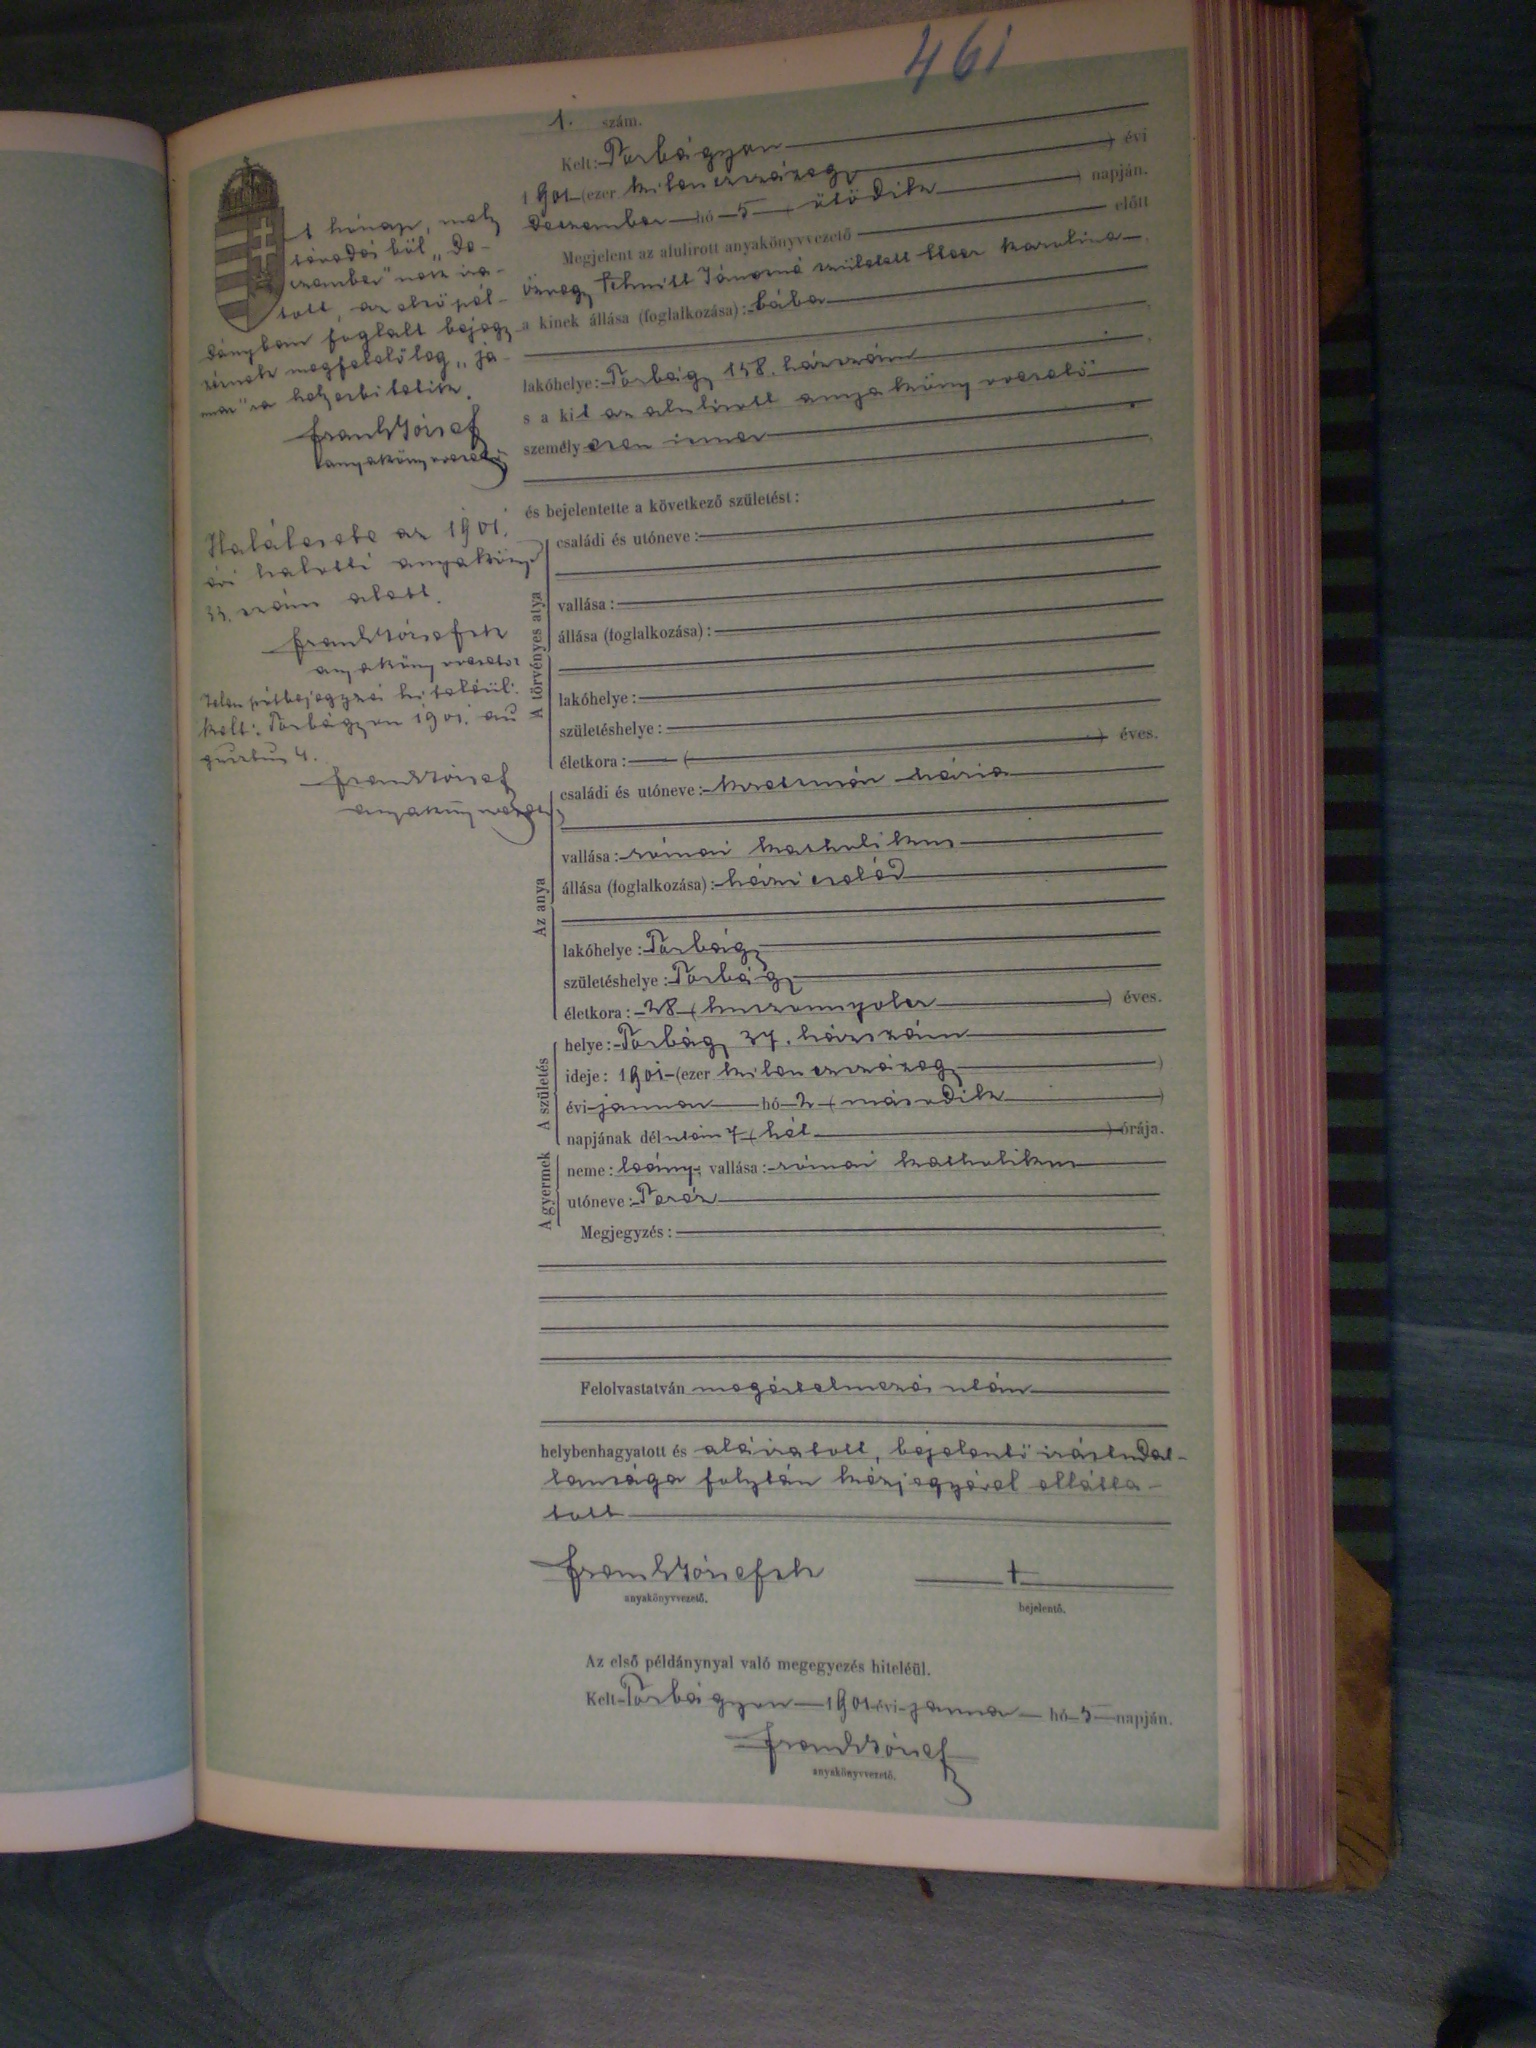 461
1. szám.
Kelt: Torbágyon
évi
1901 (ezer kilenczszázegy
deczember hó 5 ( ötödik ) napján.
Megjelent az alulirott anyakönyvvezető előtt
özvegy Schmitt Jánosné született Karolina
a kinek állása (foglalkozása): bába
lakóhelye: Torbágy 158. házszám
s a kit az alulirott anyakönyvvezető
személyesen ismer
és bejelentette a következő születést:
A törvényes atya
családi és utóneve:
vallása:
állása (foglalkozása):
lakóhelye:
születéshelye:
életkora: ( ) éves.
Az anya
családi és utóneve: Mária
vallása: római katholikus
állása (foglalkozása): házi cseléd
lakóhelye: Torbágy
születéshelye: Torbágy
életkora: 28 ( huszonnyolcz ) éves.
A születés
helye: Torbágy 37. házszám
ideje: 1901 (ezer kilenczszázegy )
évi januar hó 2 ( második )
napjának délután 7 ( hét ) órája.
A gyermek
neme: leány; vallása: római katholikus
utóneve: Teréz
Megjegyzés:
Felolvastatván megértelmezés után
helybenhagyatott és aláiratott, bejelentő irástudat-
lansága folytán kézjegyével ellátta-
tott
Frank József sk
anyakönyvvezető.
+
bejelentő.
Az első példánynyal való megegyezés hiteléül.
Kelt Torbágyon 1901 évi januar hó 5 napján.
Frank József
anyakönyvvezető.
A hónap, mely
tévedésből „de-
czember"nek ira-
tott, az első pél-
dányban foglalt bejegy-
zésnek megfelelőleg „ja-
nuar"ra helyesbitetik.
Frank József
anyakönyvvezető
Halálesete az 1901.
évi halotti anyakönyv
33. szám alatt.
Frank József sk
anyakönyvvezető
Jelen pótbejegyzés hiteléül.
Kelt: Torbágyon 1901. au
gusztus 4.
Frank József
anyakönyvvezető